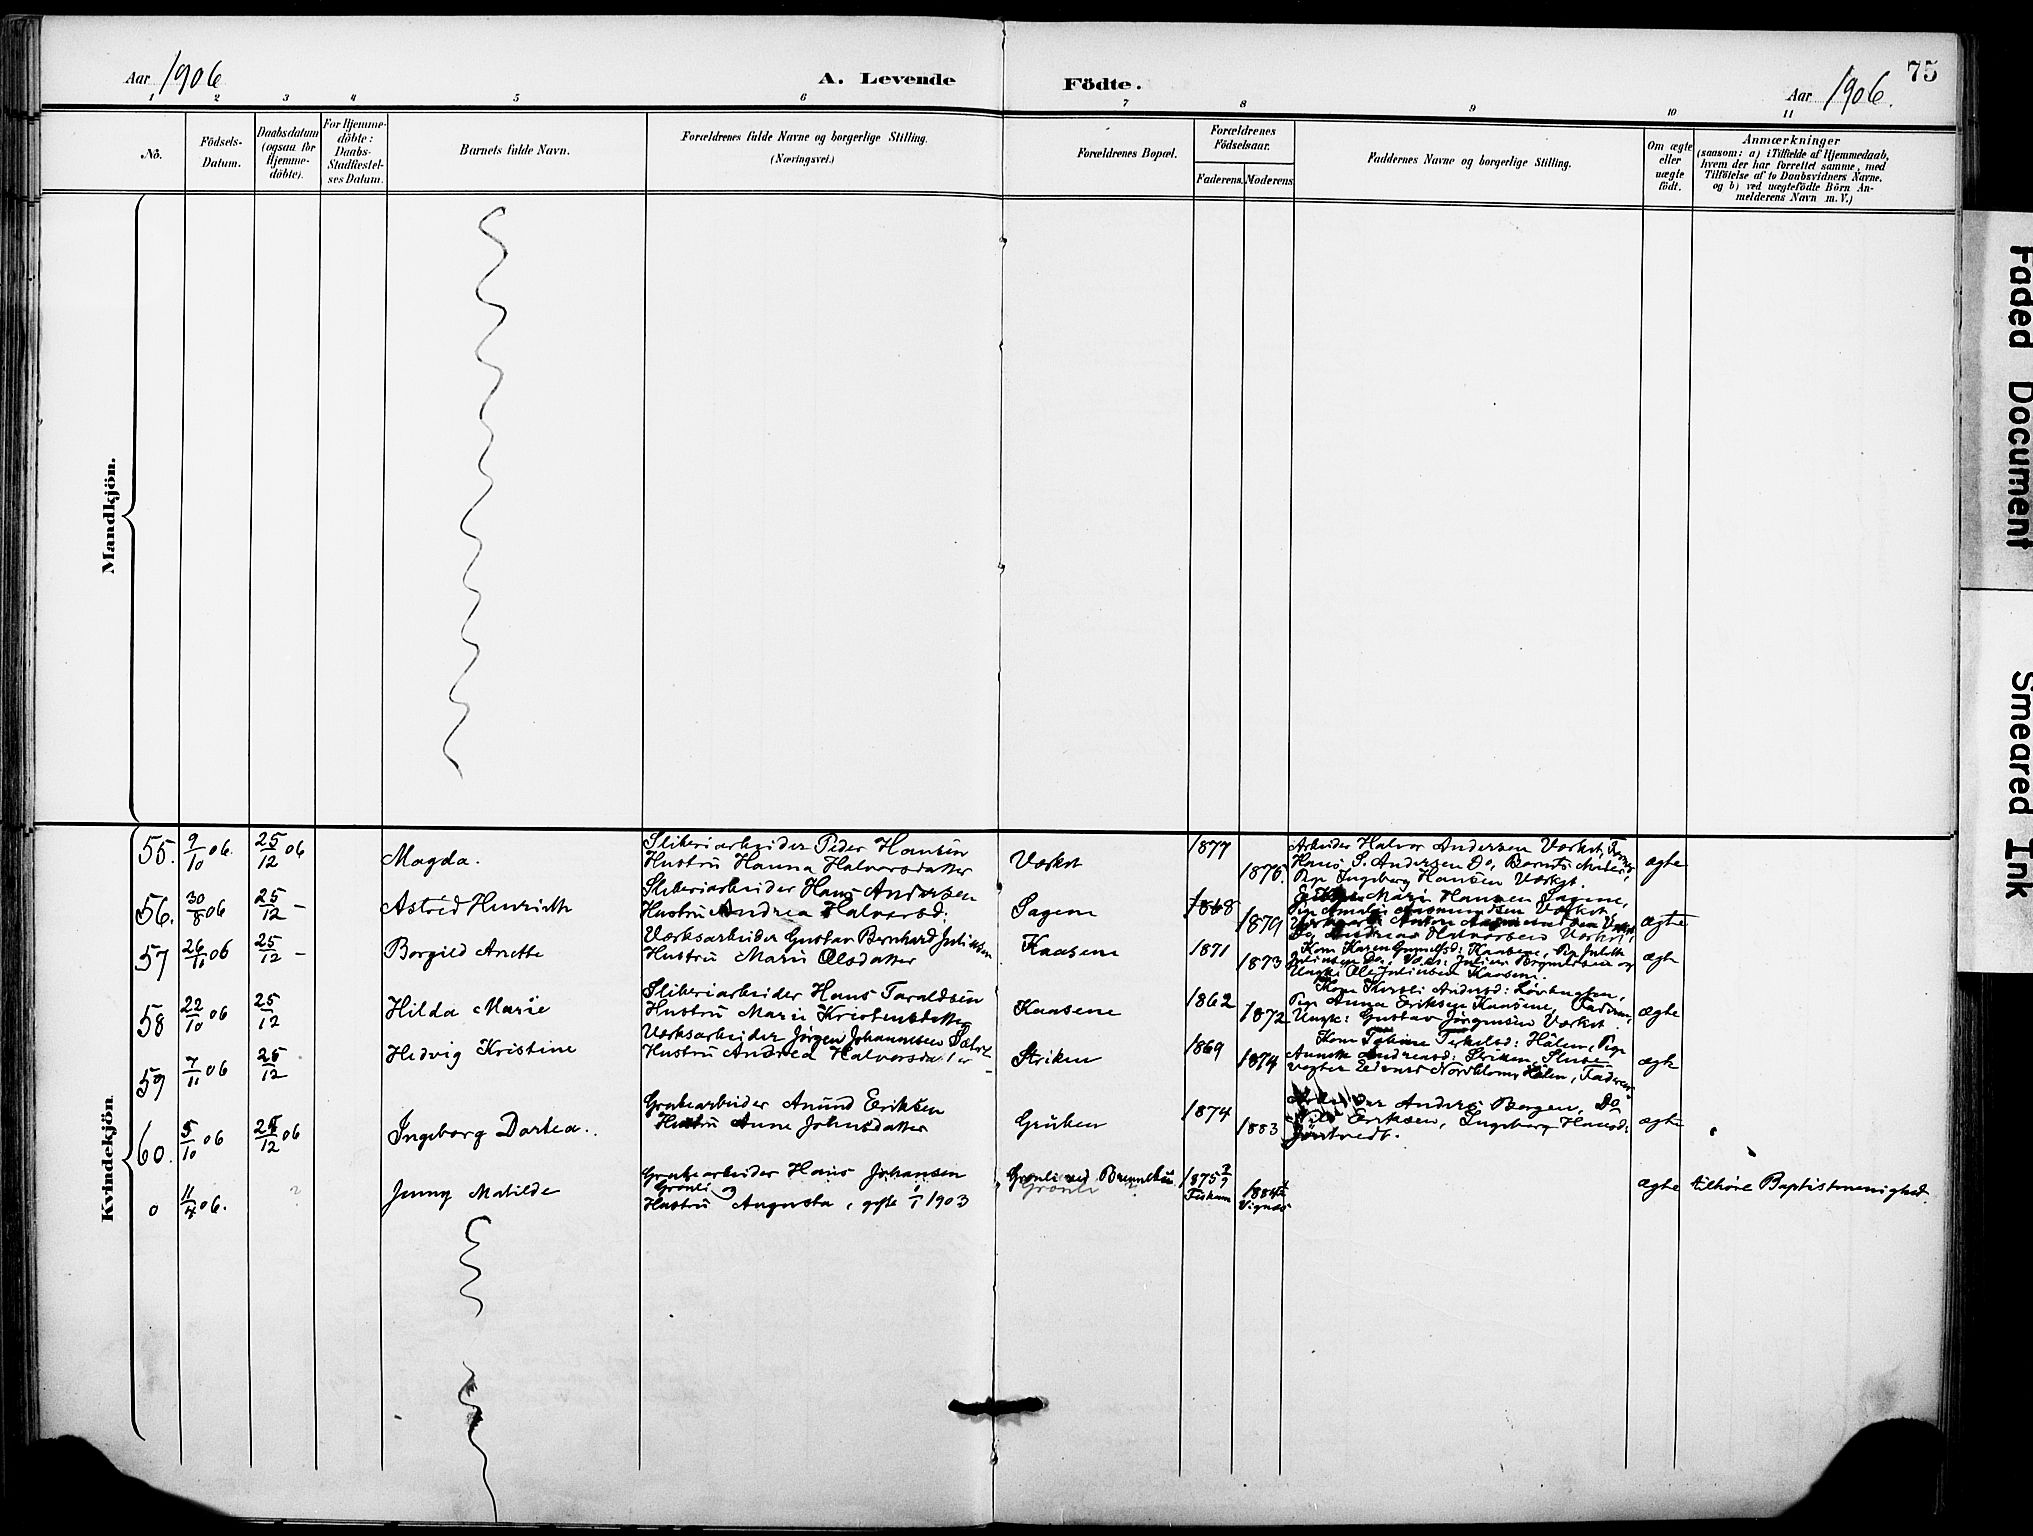 75
Aar 1906
A. Levende Födte.
Aar 1906.
1 2 3 4 5 6 7 8 9 10 11
No.
Födsels-
Datum.
Daabsdatum
(ogsaa for
Hjemme-
döbte).
For Hjemme-
döbte:
Daabs-
Stadfæstel-
ses Datum.
Barnets fulde Navn.
Forældrenes fulde Navne og borgerlige Stilling.
(Næringsvei.)
Forældrenes Bopæl.
Forældrenes
Födselsaar.
Faderens. Moderens.
Faddernes Navne og borgerlige Stilling.
Om ægte
eller
uægte
födt.
Anmærkninger
(saasom: a) i Tilfælde af Hjemmedaab,
hvem der har forrettet samme, med
Tilföielse af to Daabsvidners Navne.
og b) ved uægtefödte Börn An-
melderens Navn m. V.)
Mandkjön.
Kvindekjön
55. 9/10 06. 25/12 06
Magda.
Sliberiarbeider Peder Hansen
Hustru Hanna Halvorsdatter
Værket
1877
1875.
Arbeider Halvor Andersen Værket,
Hans S. Andersen Do, Barnets Moder,
Pige Ingeborg Hansen Værket.
ægte
56. 30/8 06 25/12 -
Astrid Henriette
Sliberiarbeider Hans Andersen
Hustru Andrea Halvorsd:
Sagene
1868
1879
Marie Hansen Sagene,
Værket
Andreas Halvorsen Værket,
ægte
57 26/11 06 25/12 -
Borgild Anette
Værksarbeider Gustav Bernhard Juliussen
Hustru Marie Olsdatter
Kaasene
1871
1873
Kone Karen Gunulfsd: Kaasene, Pige Julette
Juliusen Do,
Ungk: Ole Juliusen Kaasene.
ægte
58 22/10 06 25/12
Hilda Marie
Sliberiarbeider Hans Taraldsen
Hustru Marie Kristensdatter
Kaasene
1862
1872
Kone Kirsti Andersd:
Pige Anna Eriksen Kaasene, Faderen,
Ungk: Gustav Jörgensen Værket.
ægte
59 7/11 06 25/12
Hedvig Kristine
Værksarbeider Jörgen Johannesen
Hustru Andrea Halvorsdatter
Striken
1869
1874
Kone Terkelsd: Hölen, Pige
Andreasd: Striken, Sluse
vogter Nordblom, Hölen, Faderen
ægte
60. 5/10 06 25/12 06
Ingeborg Dortea.
Grubearbeider Anund Eriksen
Hustru Anne Johnsdatter
Gruben
1874
1883
Anders Borgen, Do
Eriksen, Ingeborg Hansd:
ægte
0 11/4 06.
Jenny Matilde
Grubearbeider Hans Johansen
Grönli
Hustru Augusta, gifte i 1903
Grönli
1875 ?
ægte
tilhöre Baptistmenighed.
Faded Document
Smeared Ink